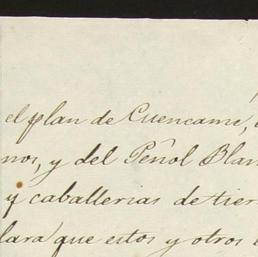 el plan de Cuencamé,
nos, y del Peñol Blan
y caballerias de tier
lara que estos y otros